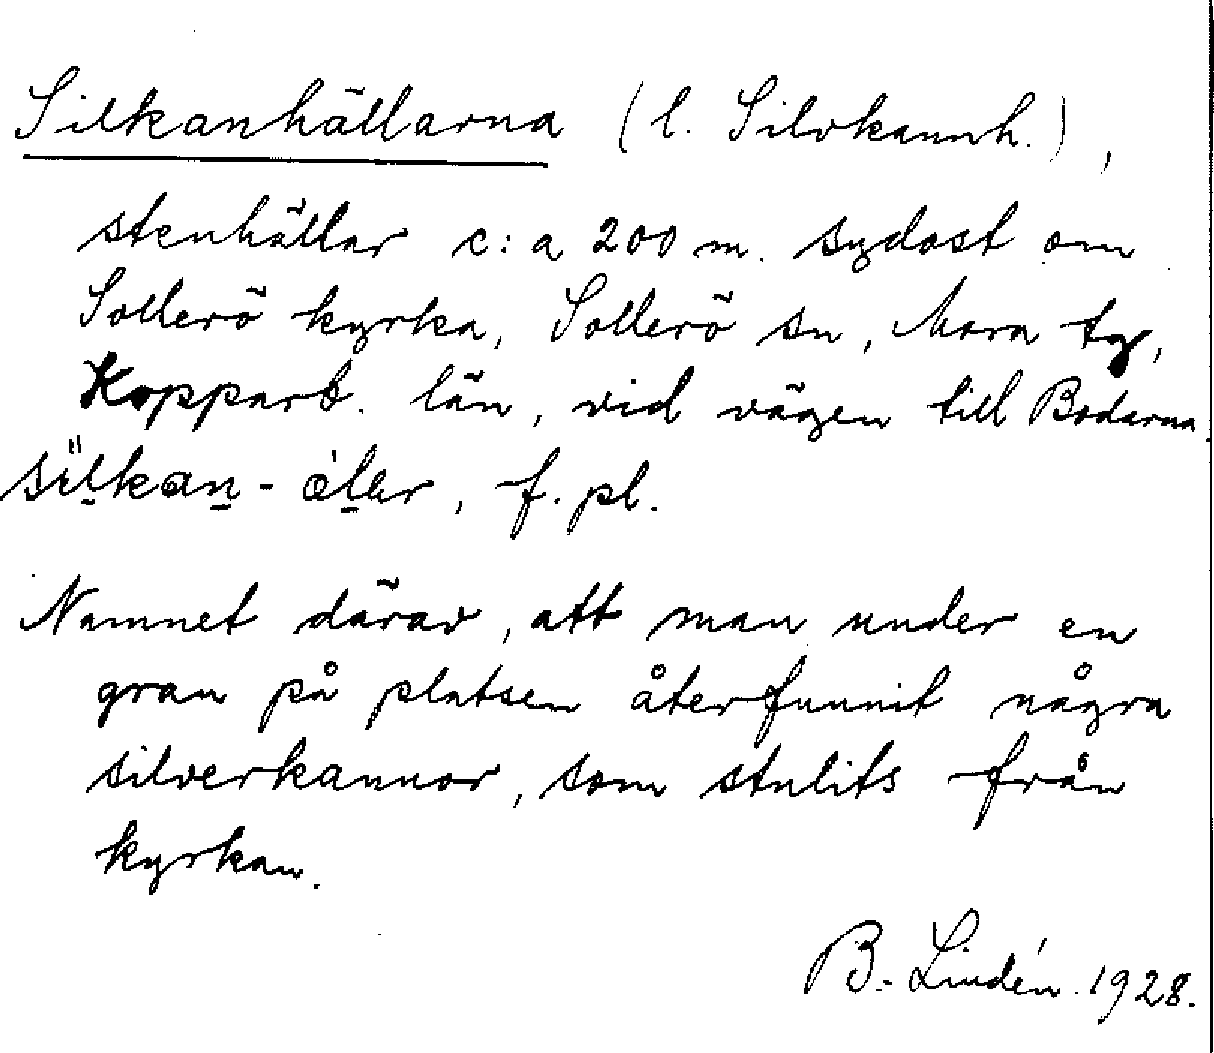 Silkanhällarna (l. Silvkannh.),
stenhällar c:a 200 m. sydost om
Sollerö kyrka, Sollerö sn, Mora tg,
Kopparb. län, vid vägen till Bodarna.
sílkan-ǽlar, f. pl.
Namnet därav, att man under en
gran på platsen återfunnit några
silverkannor, som stulits från
kyrkan.
B. Lindén. 1928.